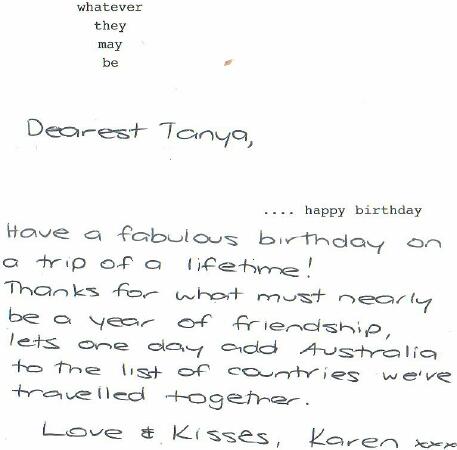 whatever
they
may
be
Dearest Tanya,
.... happy birthday
Have a fabulous birthday on
a trip of a lifetime!
Thanks for what must nearly
be a year of friendship,
lets one day add Australia
to the list of countries we've
travelled together.
Love & Kisses, Karen xxx